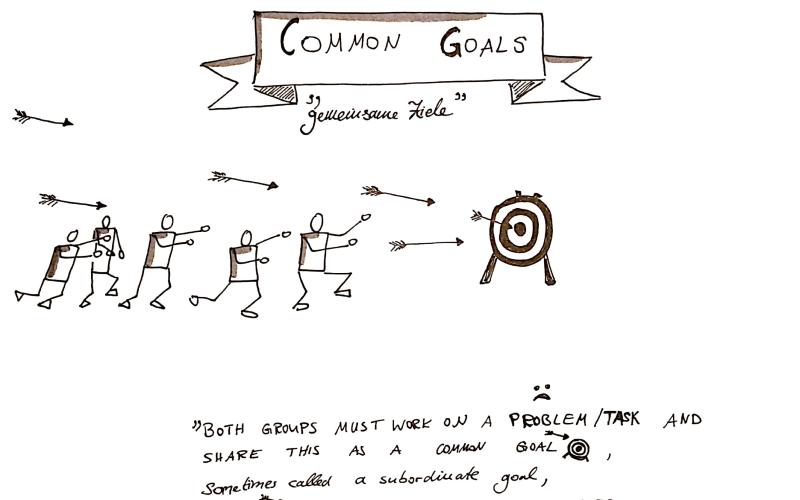 COMMON GOALS
"gemeinsame Ziele"
"BOTH GROUPS MUST WORK ON A PROBLEM/TASK AND
SHARE THIS AS A COMMON GOAL,
Sometimes called a subordinate goal,